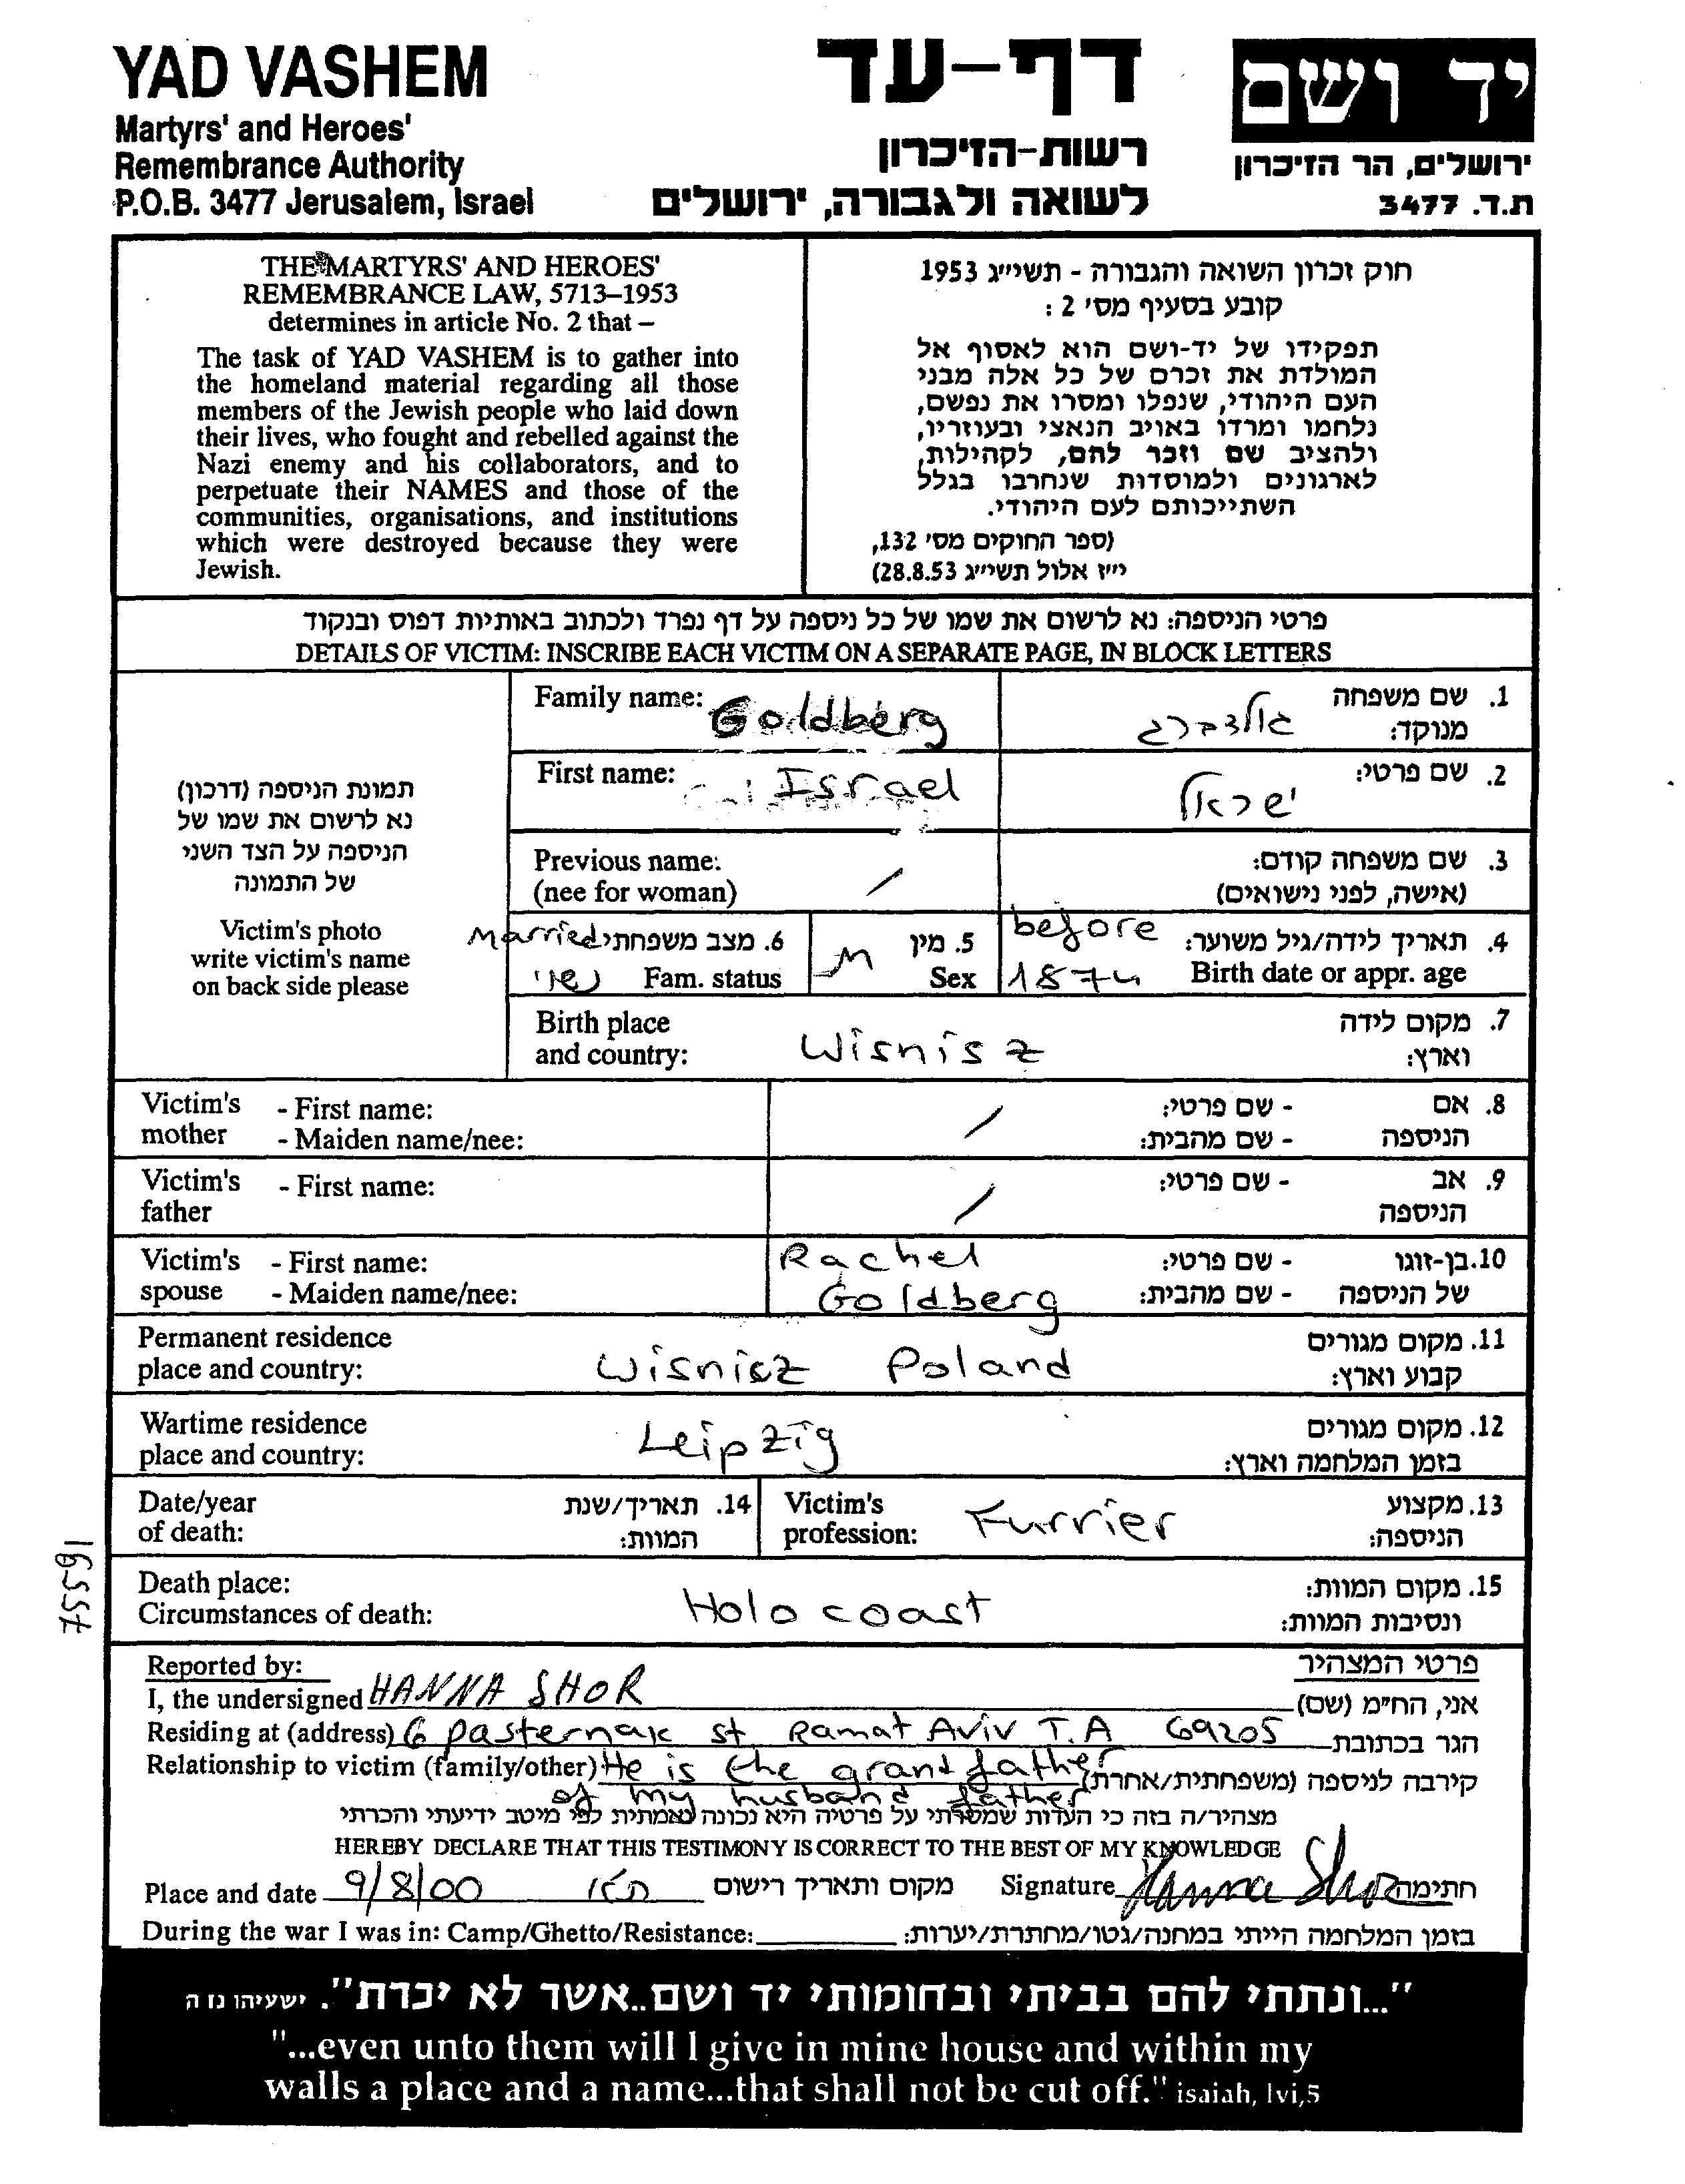 YAD VASHEM
Martyrs' and Heroes'
Remembrance Authority
P.O.B. 3477 Jerusalem, Israel
דף-עד
רשות-הזיכרון
לשואה ולגבורה, ירושלים
יד ושם
ירושלים, הר הזיכרון
ת.ד. 3477
THE MARTYRS' AND HEROES'
REMEMBRANCE LAW, 5713–1953
determines in article No. 2 that –
The task of YAD VASHEM is to gather into
the homeland material regarding all those
members of the Jewish people who laid down
their lives, who fought and rebelled against the
Nazi enemy and his collaborators, and to
perpetuate their NAMES and those of the
communities, organisations, and institutions
which were destroyed because they were
Jewish.
חוק זכרון השואה והגבורה - תשי״ג 1953
קובע בסעיף מס' 2 :
תפקידו של יד-ושם הוא לאסוף אל
המולדת את זכרם של כל אלה מבני
העם היהודי, שנפלו ומסרו את נפשם,
נלחמו ומרדו באויב הנאצי ובעוזריו,
ולהציב שם וזכר להם, לקהילות,
לארגונים ולמוסדות שנחרבו בגלל
השתייכותם לעם היהודי.
(ספר החוקים מס' 132,
י״ז אלול תשי״ג 28.8.53)
פרטי הניספה: נא לרשום את שמו של כל ניספה על דף נפרד ולכתוב באותיות דפוס ובנקוד
DETAILS OF VICTIM: INSCRIBE EACH VICTIM ON A SEPARATE PAGE, IN BLOCK LETTERS
תמונת הניספה (דרכון)
נא לרשום את שמו של
הניספה על הצד השני
של התמונה
Victim's photo
write victim's name
on back side please
Family name: Goldberg גולדברג 1. שם משפחה
מנוקד:
First name: Israel ישראל 2. שם פרטי:
Previous name: 3. שם משפחה קודם:
(nee for woman) / (אישה, לפני נישואים)
Married 6. מצב משפחתי 5. מין before 4. תאריך לידה/גיל משוער:
נשוי Fam. status M Sex 1874 Birth date or appr. age
Birth place 7. מקום לידה
and country: Wisnisz וארץ:
Victim's - First name: - שם פרטי: 8. אם
mother - Maiden name/nee: / - שם מהבית: הניספה
Victim's - First name: - שם פרטי: 9. אב
father / הניספה
Victim's - First name: Rachel - שם פרטי: 10. בן-זוגו
spouse - Maiden name/nee: Goldberg - שם מהבית: של הניספה
Permanent residence 11. מקום מגורים
place and country: Wisnisz Poland קבוע וארץ:
Wartime residence 12. מקום מגורים
place and country: Leipzig בזמן המלחמה וארץ:
Date/year 14. תאריך/שנת Victim's 13. מקצוע
of death: המוות: profession: Furrier הניספה:
Death place: 15. מקום המוות:
Circumstances of death: Holocoast ונסיבות המוות:
16557
Reported by: פרטי המצהיר
I, the undersigned HANNA SHOR אני, הח״מ (שם)
Residing at (address) 6 Pasternak st. Ramat Aviv T.A 69205 הגר בכתובת
Relationship to victim (family/other) He is the grandfather קירבה לניספה (משפחתית/אחרת)
of my husband father
מצהיר/ה בזה כי העדות שמסרתי על פרטיה היא נכונה ואמתית לפי מיטב ידיעתי והכרתי
HEREBY DECLARE THAT THIS TESTIMONY IS CORRECT TO THE BEST OF MY KNOWLEDGE
Place and date 9/8/00 מקום ותאריך רישום Signature Hanna Shor חתימה
During the war I was in: Camp/Ghetto/Resistance: בזמן המלחמה הייתי במחנה/גטו/מחתרת/יערות:
"...ונתתי להם בביתי ובחומותי יד ושם..אשר לא יכרת". ישעיהו נז ה
"...even unto them will I give in mine house and within my
walls a place and a name...that shall not be cut off." isaiah, lvi,5